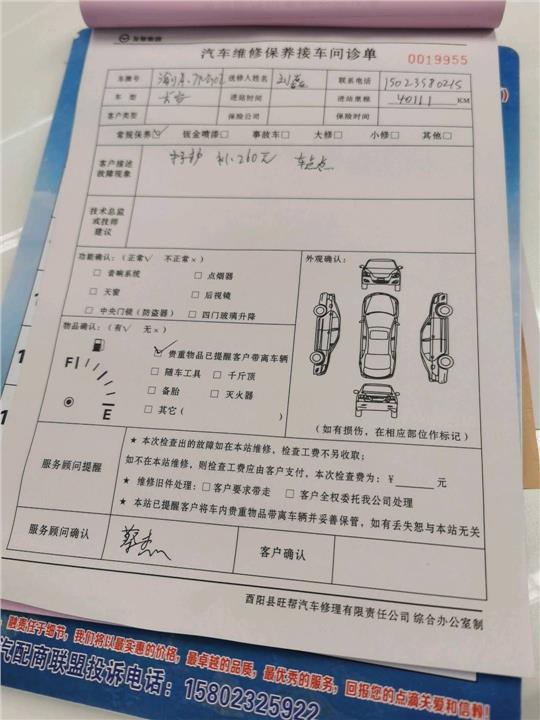 汽车维修保养接车问诊单
0019955
车牌号 送修人姓名 联系电话 15023580215
车型 长安 进站时间 进站里程 40111 KM
客户类型 保险公司 保险时间
常规保养☑ 钣金喷漆□ 事故车□ 大修□ 小修□ 其他□
客户描述
故障现象
260元
技术总监
或技师
建议
功能确认:(正常√ 不正常×)
□ 音响系统 □ 点烟器
□ 天窗 □ 后视镜
□ 中央门锁(防盗器) □ 四门玻璃升降
外观确认:
(如有损伤,在相应部位作标记)
物品确认:(有√ 无×)
F
E
☑ 贵重物品已提醒客户带离车辆
□ 随车工具 □ 千斤顶
□ 备胎 □ 灭火器
□ 其它( )
服务顾问提醒
★ 本次检查出的故障如在本站维修,检查工费不另收取;
如不在本站维修,则检查工费应由客户支付,本次检查费为:¥ 元
★ 维修旧件处理:□ 客户要求带走 □ 客户全权委托我公司处理
★ 本站已提醒客户将车内贵重物品带离车辆并妥善保管,如有丢失恕与本站无关
服务顾问确认 客户确认
酉阳县旺帮汽车修理有限责任公司 综合办公室制
融责任于细节,我们将以最实惠的价格,最卓越的品质,最优秀的服务,回报您的点滴关爱和信赖!
汽配商联盟投诉电话:15802325922